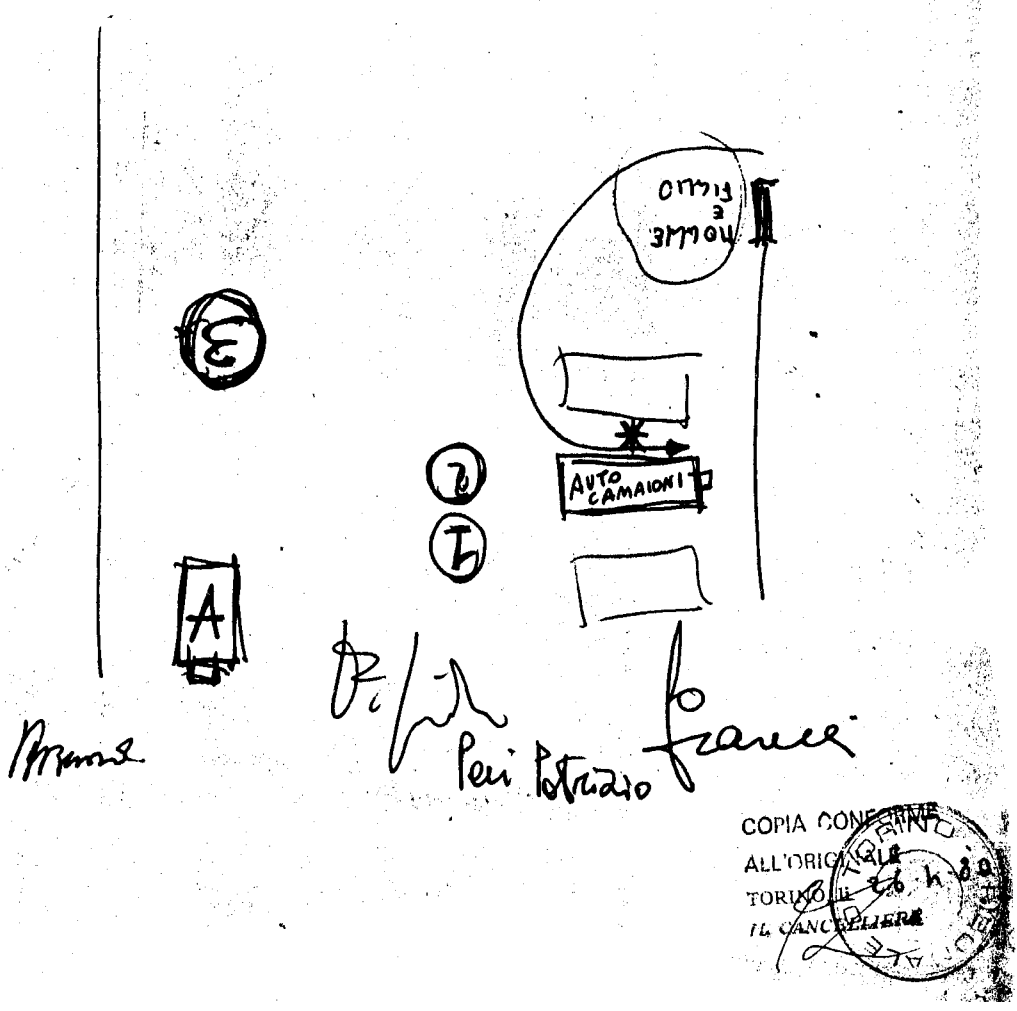 MOGLIE
E
FIGLIO
3
2
1
AUTO
CAMAIONI
A
Peci Patrizio
COPIA CONFORME
ALL'ORIGINALE
TORINO, li 26·4·80
IL CANCELLIERE
TORINO